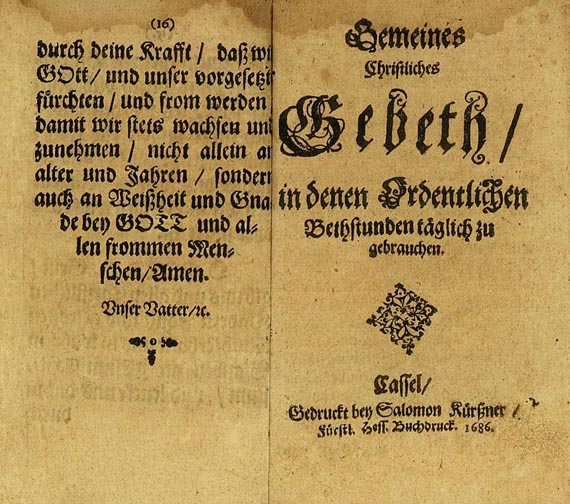 (16)
durch deine Krafft / daß wi
GOtt / und unser vorgesetzt
fürchten / und from werden
damit wir stets wachsen un
zunehmen / nicht allein a
alter und Jahren / sondern
auch an Weißheit und Gna
de bey GOTT und al-
len frommen Men-
schen / Amen.
Vnser Vatter / ꝛc.
Gemeines
Christliches
Gebeth /
in denen Ordentlichen
Bethstunden täglich zu
gebrauchen.
Cassel /
Gedruckt bey Salomon Kürßner /
Fürstl. Hess. Buchdruck. 1686.